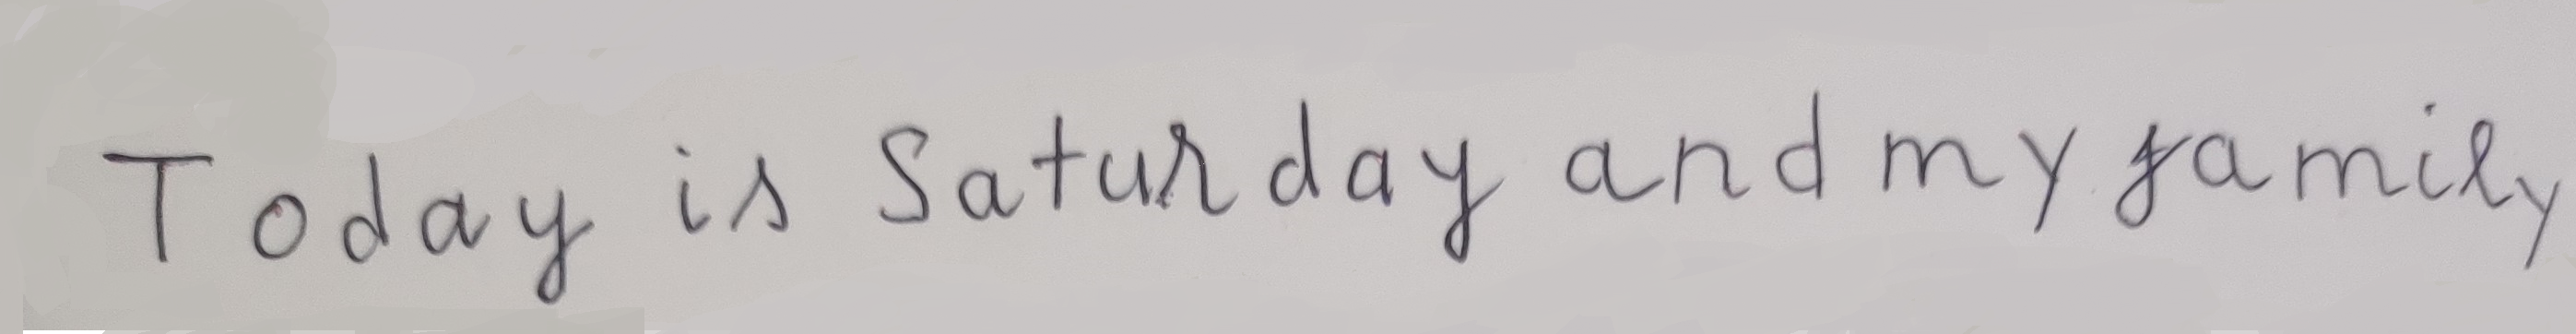 Today is Saturday and my family